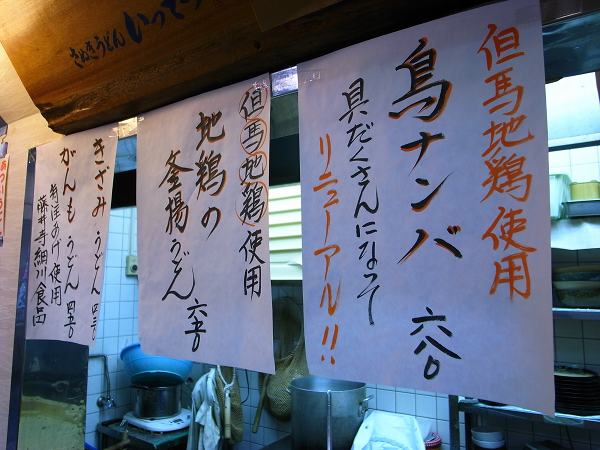 さぬきうどん
但馬地鶏使用
鳥ナンバ 六八〇
具だくさんになって
リニューアル!!
但馬地鶏使用
地鶏の
釜揚うどん 六五〇
きざみうどん 四三〇
がんもうどん 四五〇
藤井寺細川食品